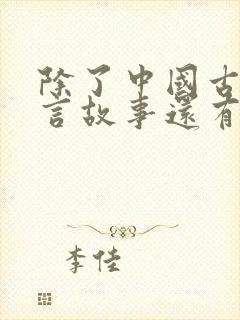 除了中國古
言故事還有
李佳